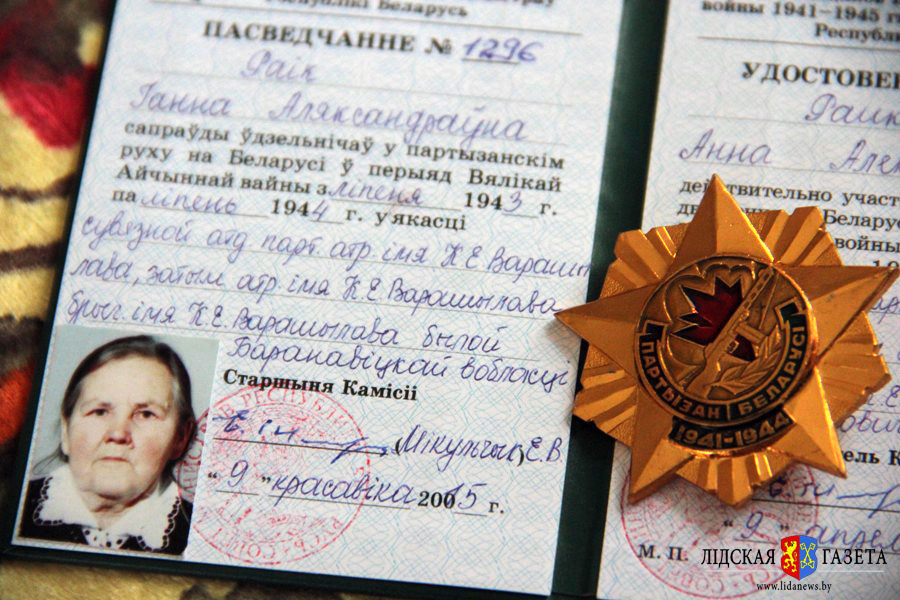 Рэспублікі Беларусь
ПАСВЕДЧАННЕ № 1296
Раік
Ганна Аляксандраўна
сапраўды ўдзельнічаў у партызанскім
руху на Беларусі ў перыяд Вялікай
Айчыннай вайны з ліпеня 1943 г.
па ліпень 1944 г. у якасці
сувязной атд парт. атр. імя К Е Варашы
лава, затым атр. імя К Е Варашылава
брыг. імя К.Е. Варашылава былой
Баранавіцкай вобласці
Старшыня Камісіі
Мікульчык Е.В
"9" красавіка 2005 г.
войны 1941–1945 го
Республи
УДОСТОВЕР
Раик
Анна Але
действительно участ
Беларус
войны
ПАРТЫЗАН БЕЛАРУСІ
1941-1944
ель К
"9" апрел
М. П.
ЛІДСКАЯ ГАЗЕТА
www.lidanews.by